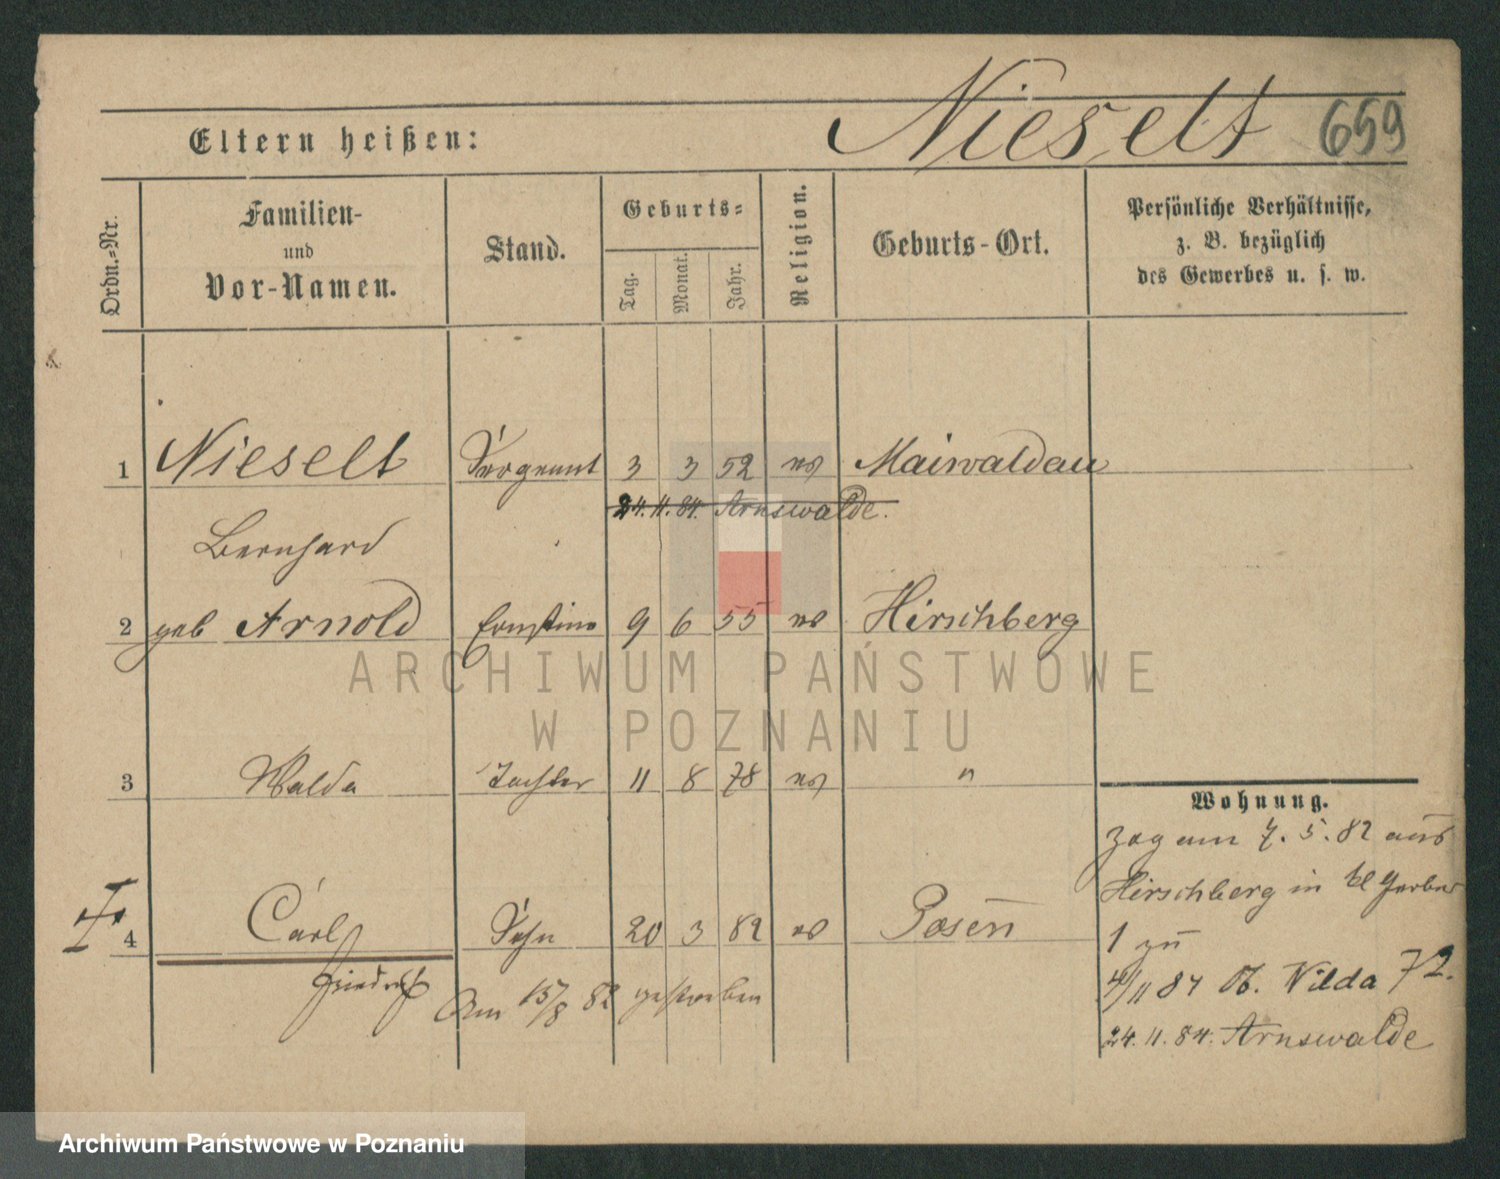 Nieselt 659
Eltern heißen:
Ordn.-Nr.
Familien-
und
Vor-Namen.
Stand.
Geburts-
Tag.
Monat.
Jahr.
Religion.
Geburts-Ort.
Persönliche Verhältnisse,
z. B. bezüglich
des Gewerbes u. s. w.
1 Nieselt Sergeant 3 3 52 ev Maiwaldau
24. 11. 84. Arnswalde.
Bernhard
2 geb Arnold Ernstine 9 6 55 ev Hirschberg
ARCHIWUM PAŃSTWOWE
W POZNANIU
3 Walda Tochter 11 8 78 ev "
4 Carl Sohn 20 3 82 ev Posen
Friedrich
Am 15/8 82 gestorben
Wohnung.
Zog am 7. 5. 82 aus
Hirschberg in kl Gerber
1 zu
4/11 84 O. Wilda 72.
24. 11. 84. Arnswalde
Archiwum Państwowe w Poznaniu